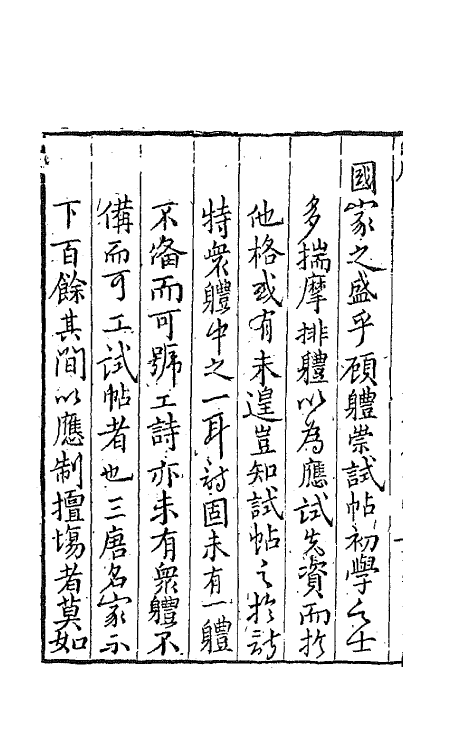 國家之盛乎顧體崇試帖初學之士
多揣摩排體以為應試先資而於
他格或有未遑豈知試帖之於詩
特衆體中之一耳詩固未有一體
不備而可號工詩亦未有衆體不
備而可工試帖者也三唐名家不
下百餘其間以應制擅塲者莫如